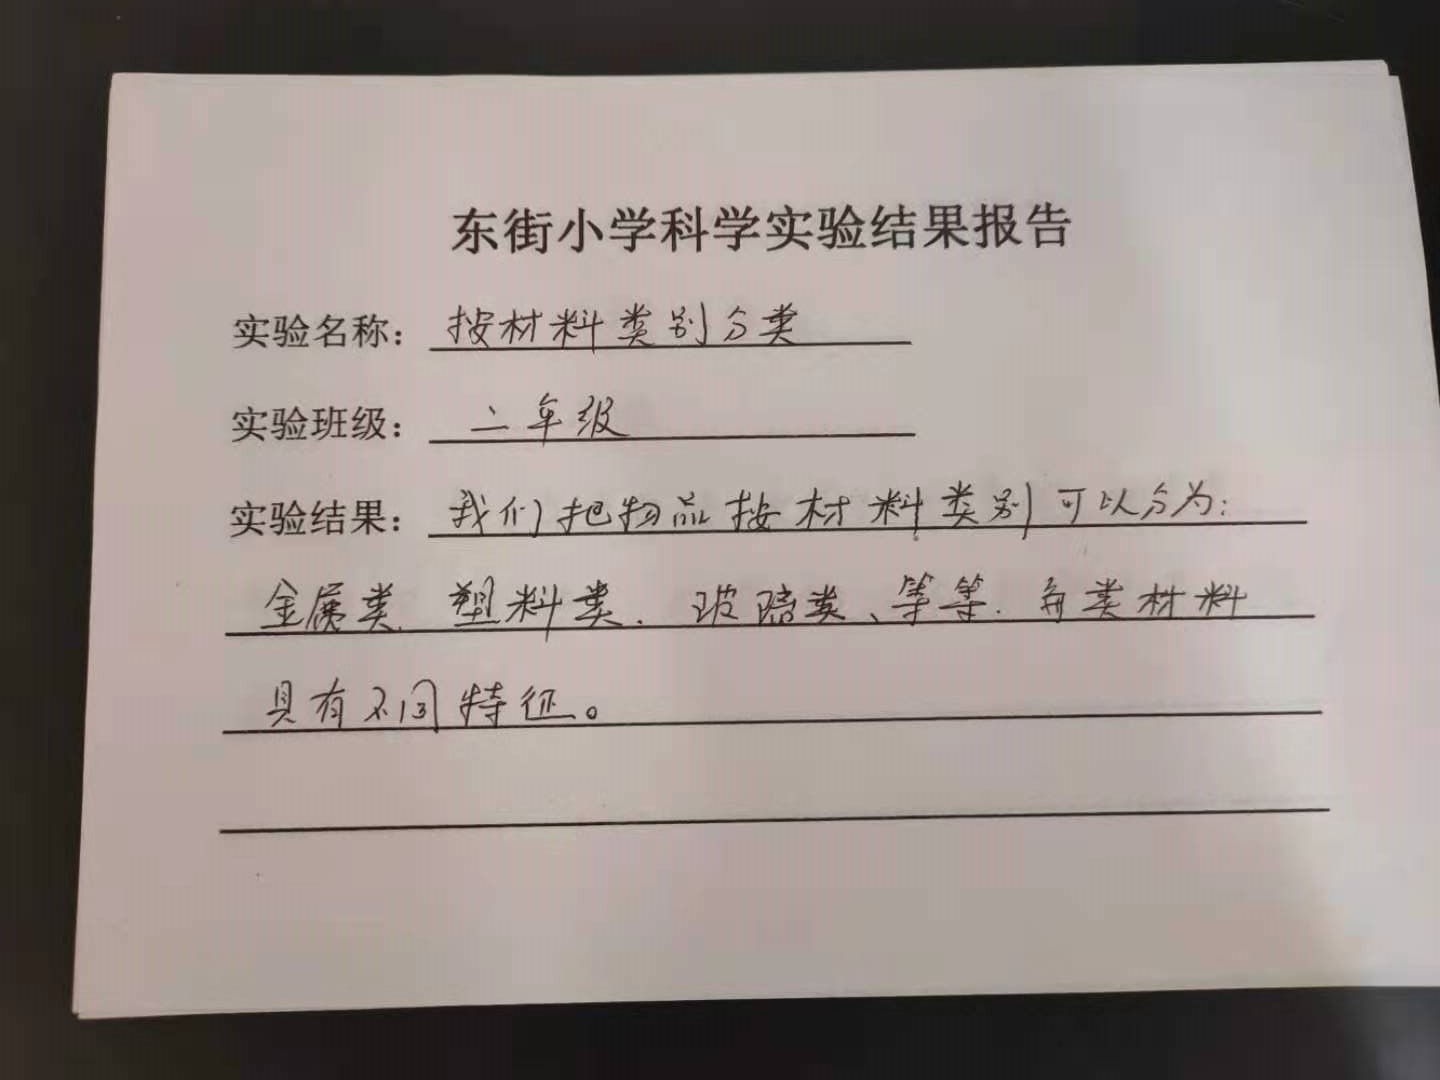 东街小学科学实验结果报告
实验名称：按材料类别分类
实验班级：二年级
实验结果：我们把物品按材料类别可以分为：
金属类、塑料类、玻璃类、等等。每类材料
具有不同特征。